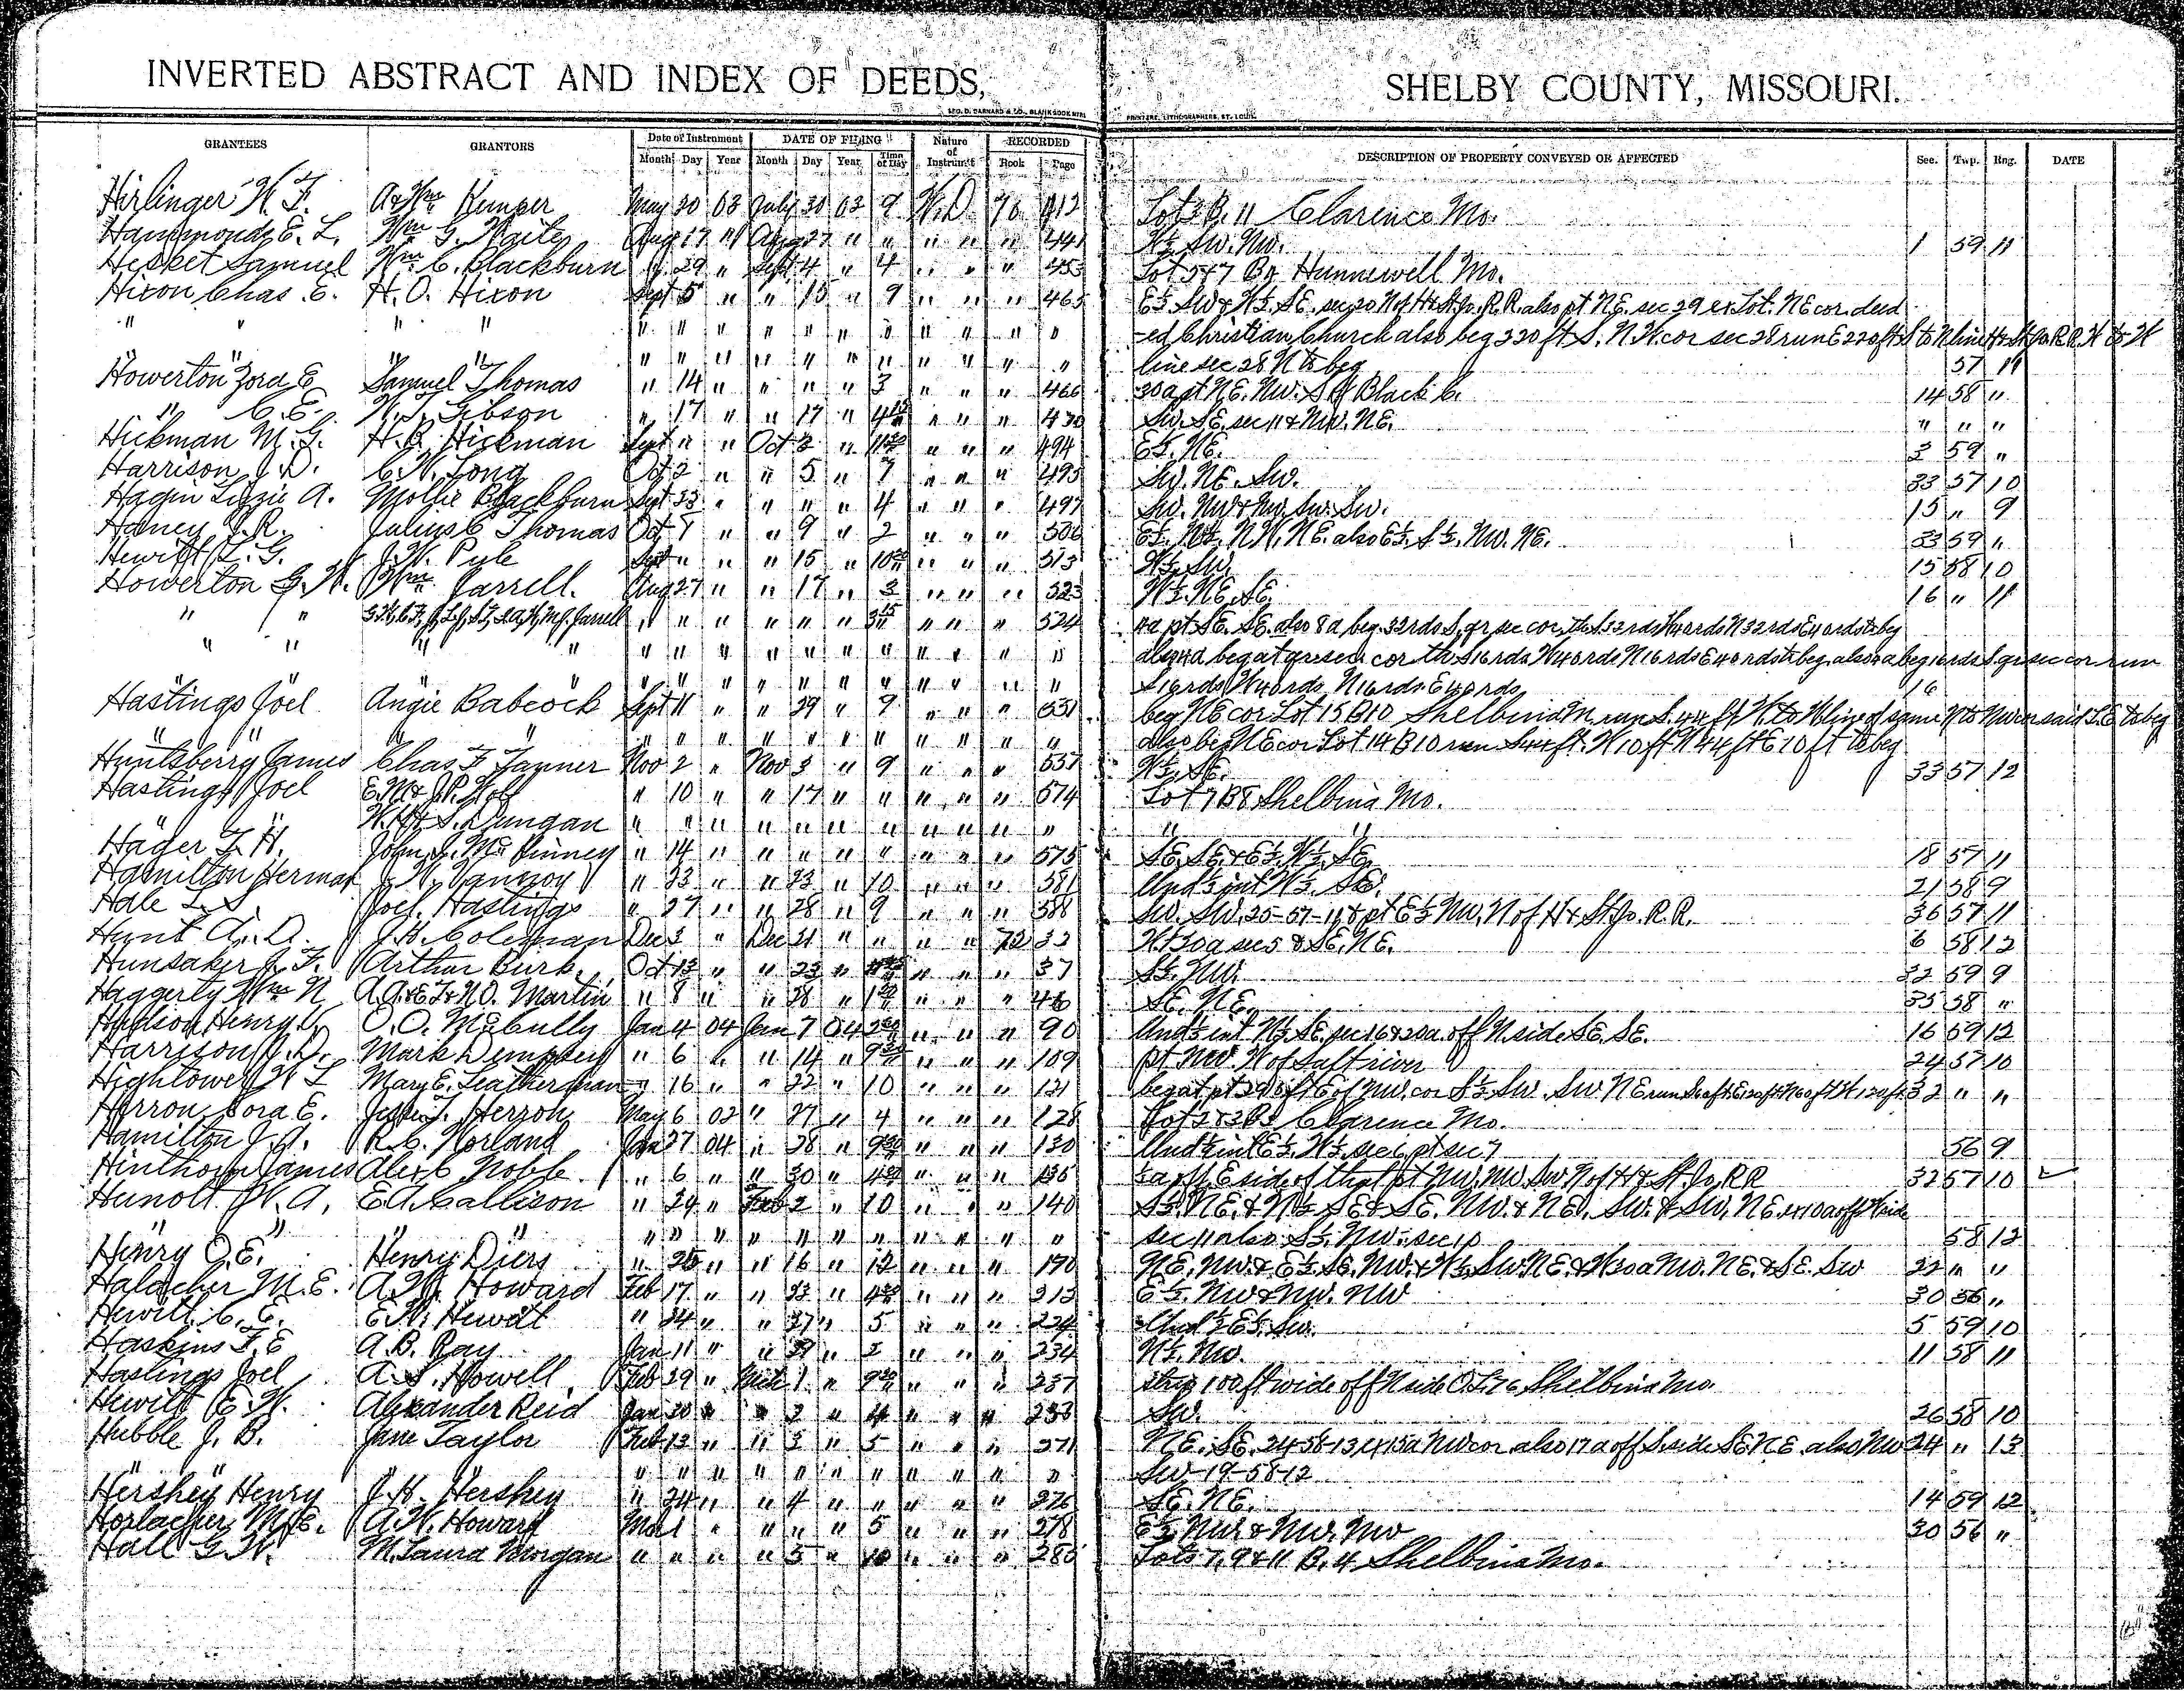 INVERTED ABSTRACT AND INDEX OF DEEDS, SHELBY COUNTY, MISSOURI.
GRANTEES GRANTORS Date of Instrument DATE OF FILING Nature of Instrum't RECORDED DESCRIPTION OF PROPERTY CONVEYED OR AFFECTED Sec. Twp. Rng. DATE
Month Day Year Month Day Year Time of Day Book Page
Hirlinger W. F. May 30 03 July 30 03 9 W.D. 76 412 Lot 3 B. 11 Clarence Mo.
Hammonds E. L. Wm G. Waite Aug 17 " Aug 27 " " " " " 441 W½ Sw. Nw. 1 59 11
Hesket Samuel Wm C. Blackburn " 29 " Sept 4 " 4 " " " 453 Hunnewell Mo.
Hixon Chas. E. H. O. Hixon Sept 5 " " 15 " 9 " " " 465 E½ Sw & W½ SE. sec 20 N of H & St Jo. R.R. also pt NE. sec 29 ex Lot. NE cor. deed
" " " " " " " " " " " " " " " -ed Christian Church also beg 220 ft S. N.W. cor sec 28 run E 220 ft S to N line H & St Jo R.R. W to W
" " " " " " " " " " " " " line sec 28 N to beg 57 11
Howerton Zora E Samuel Thomas " 14 " " " " 3 " " " 466 30a pt NE. Nw. S of Black C. 14 58 "
" C. E. W. T. Gibson " 17 " " 17 " " " " 470 Sw. SE. sec 11 & Nw. NE. " " "
Hickman M. G. H. B. Hickman Sept " " Oct 3 " " " " 494 E½ NE. 3 59 "
Harrison J. D. C. W. Long Oct 2 " " 5 " 7 " " " 495 Sw. NE. Sw. 33 57 10
Hagin Lizzie A. Mollie Blackburn Sept 23 " " " " 4 " " " 497 Sw. Nw & Nw. Sw. Sw. 15 " 9
Haney J. R. Julius C Thomas Oct 7 " " 9 " 2 " " " 506 E½ N½ NW. NE. also E½ S½ Nw. NE. 33 59 "
Hewitt L. G. J. W. Pyle Sept " " " 15 " " " " 513 W½ Sw. 15 58 10
Howerton G. W. Wm Jarrell. Aug 27 " " 17 " 3 " " " 523 W½ NE. SE. 16 " 11
" " Jarrell " " " " " " " " " 524 4a pt SE. SE. also 8a beg. 32 rds S. qr sec cor. th S 32 rds W 40 rds N 32 rds E 40 rds to beg
" " " " " " " " " " " " " " " also 4a beg at qr sec. cor. th S 16 rds W 40 rds N 16 rds E 40 rds to beg. also 4a beg 16 rds S. qr sec cor run
" " " " " " " " " " " " " S 16 rds W 40 rds N 16 rds E 40 rds 16
Hastings Joel Angie Babcock Sept 11 " " 29 " 9 " " " 531 beg NE cor Lot 15 B 10 Shelbina M. run S. 44 ft W. to W line of same N to Nw cor said L. E to beg
" " " " " " " " " " " " " " " also beg NE cor Lot 14 B 10 run S 44 ft. W 10 ft N 44 ft E 10 ft to beg
Huntsberry James Chas F Tanner Nov 2 " Nov 3 " 9 " " " 557 W½ SE. 33 57 12
Hastings Joel " 10 " " 17 " " " " " 574 Lot 7 B 8 Shelbina Mo.
" " Dungan " " " " " " " " " " " " "
Hager F. H. John S. McKinney " 14 " " " " " " " " 575 SE. SE. & E½ W½ SE. 18 57 11
Hamilton Herman J. W. Vannoy " 23 " " 23 " 10 " " " 581 Und ½ int W½ SE. 21 58 9
Hale L. S. Joel Hastings " 27 " " 28 " 9 " " " 588 Sw. Sw. 25-57-11 & pt E½ Nw. N of H & St Jo. R.R. 36 57 11
Hunt A. D. J. H. Coleman Dec 3 " Dec 21 " " " " 72 32 sec 5 & SE. NE. 6 58 12
Hunsaker J. F. Arthur Burk. Oct 13 " " 23 " " " " 37 S½ Nw. 32 59 9
Haggerty Wm N A. A. & E. F. & N. O. Martin " 8 " " 28 " " " " 46 SE. NE. 35 58 "
Hudson Henry V. O. O. McCully Jan 4 04 Jan 7 04 " " " 90 Und ½ int N½ SE. sec 16 & 20a. off N side SE. SE. 16 59 12
Harrison J. D. Mark Dempsey " 6 " " 14 " " " " 109 pt Nw. W of Salt river 24 57 10
Hightower W L Mary E. Leatherman " 16 " " 22 " 10 " " " 121 32 " "
Herron Cora E. Herron May 6 02 " 27 " 4 " " " 128 Lot 2 & 3 B 3 Clarence Mo.
Hamilton J. A. R. C. Norland Jan 27 04 " 28 " " " " 130 Und ½ int E½ W½ sec 6 pt sec 7 56 9
Hinthorn James Alex C Nobb " 6 " " 30 " " " " 136 5a off E side of that pt Nw. Nw. Sw. N of H & St. Jo. RR 32 57 10
Hunolt W. A. E A Callison " 24 " Feb 2 " 10 " " " 140 S½ NE. & N½ SE & SE. NW. & NE. Sw. & Sw. NE. ex 10a off W side
" " " " " " " " " " " " " " " sec 11 also S½ Nw. sec 1 58 12
Henry O. E. Henry Diers " 25 " " 16 " 12 " " " 190 NE. Nw. & E½ SE. Nw. & W½ Sw. NE. & W 30a Nw. NE. & SE. Sw 22 " "
Halacher M. E. A. W. Howard Feb 17 " " 23 " " " " 213 E½ Nw & Nw. NW 30 56 "
Hewitt C. E. E. W. Hewitt " 24 " " 27 " 5 " " " 224 Und ½ E½ Sw. 5 59 10
Haskins F. E A. B. Ray Jan 11 " " 29 " 2 " " " 234 N½ Nw. 11 58 11
Hastings Joel A. S. Howell Feb 29 " Mch 1 " " " " 237 strip 100 ft wide off N side Shelbina Mo.
Hewitt E. W. Alexander Reid Jan 20 " " 2 " 4 " " " 253 Sw. 26 58 10
Hubble J. B. Jane Taylor Feb 13 " " 3 " 5 " " " 271 NE. SE. 24-58-13 ex 15a Nw cor also 17a off S side SE NE also Nw 24 " 13
" " " " " " " " " " " " " Sw 19-58-12
Hershey Henry J. H. Hershey " 24 " " 4 " " " " " 276 SE. NE. 14 59 12
Horlacher M. E. A. W. Howard Mar 1 " " " " 5 " " " 278 E½ Nw. & Nw. Nw 30 56 "
Hall G. W. M. Laura Morgan " " " " 5 " 10 " " " 285 Lots 7, 9 & 11 B. 4 Shelbina Mo.